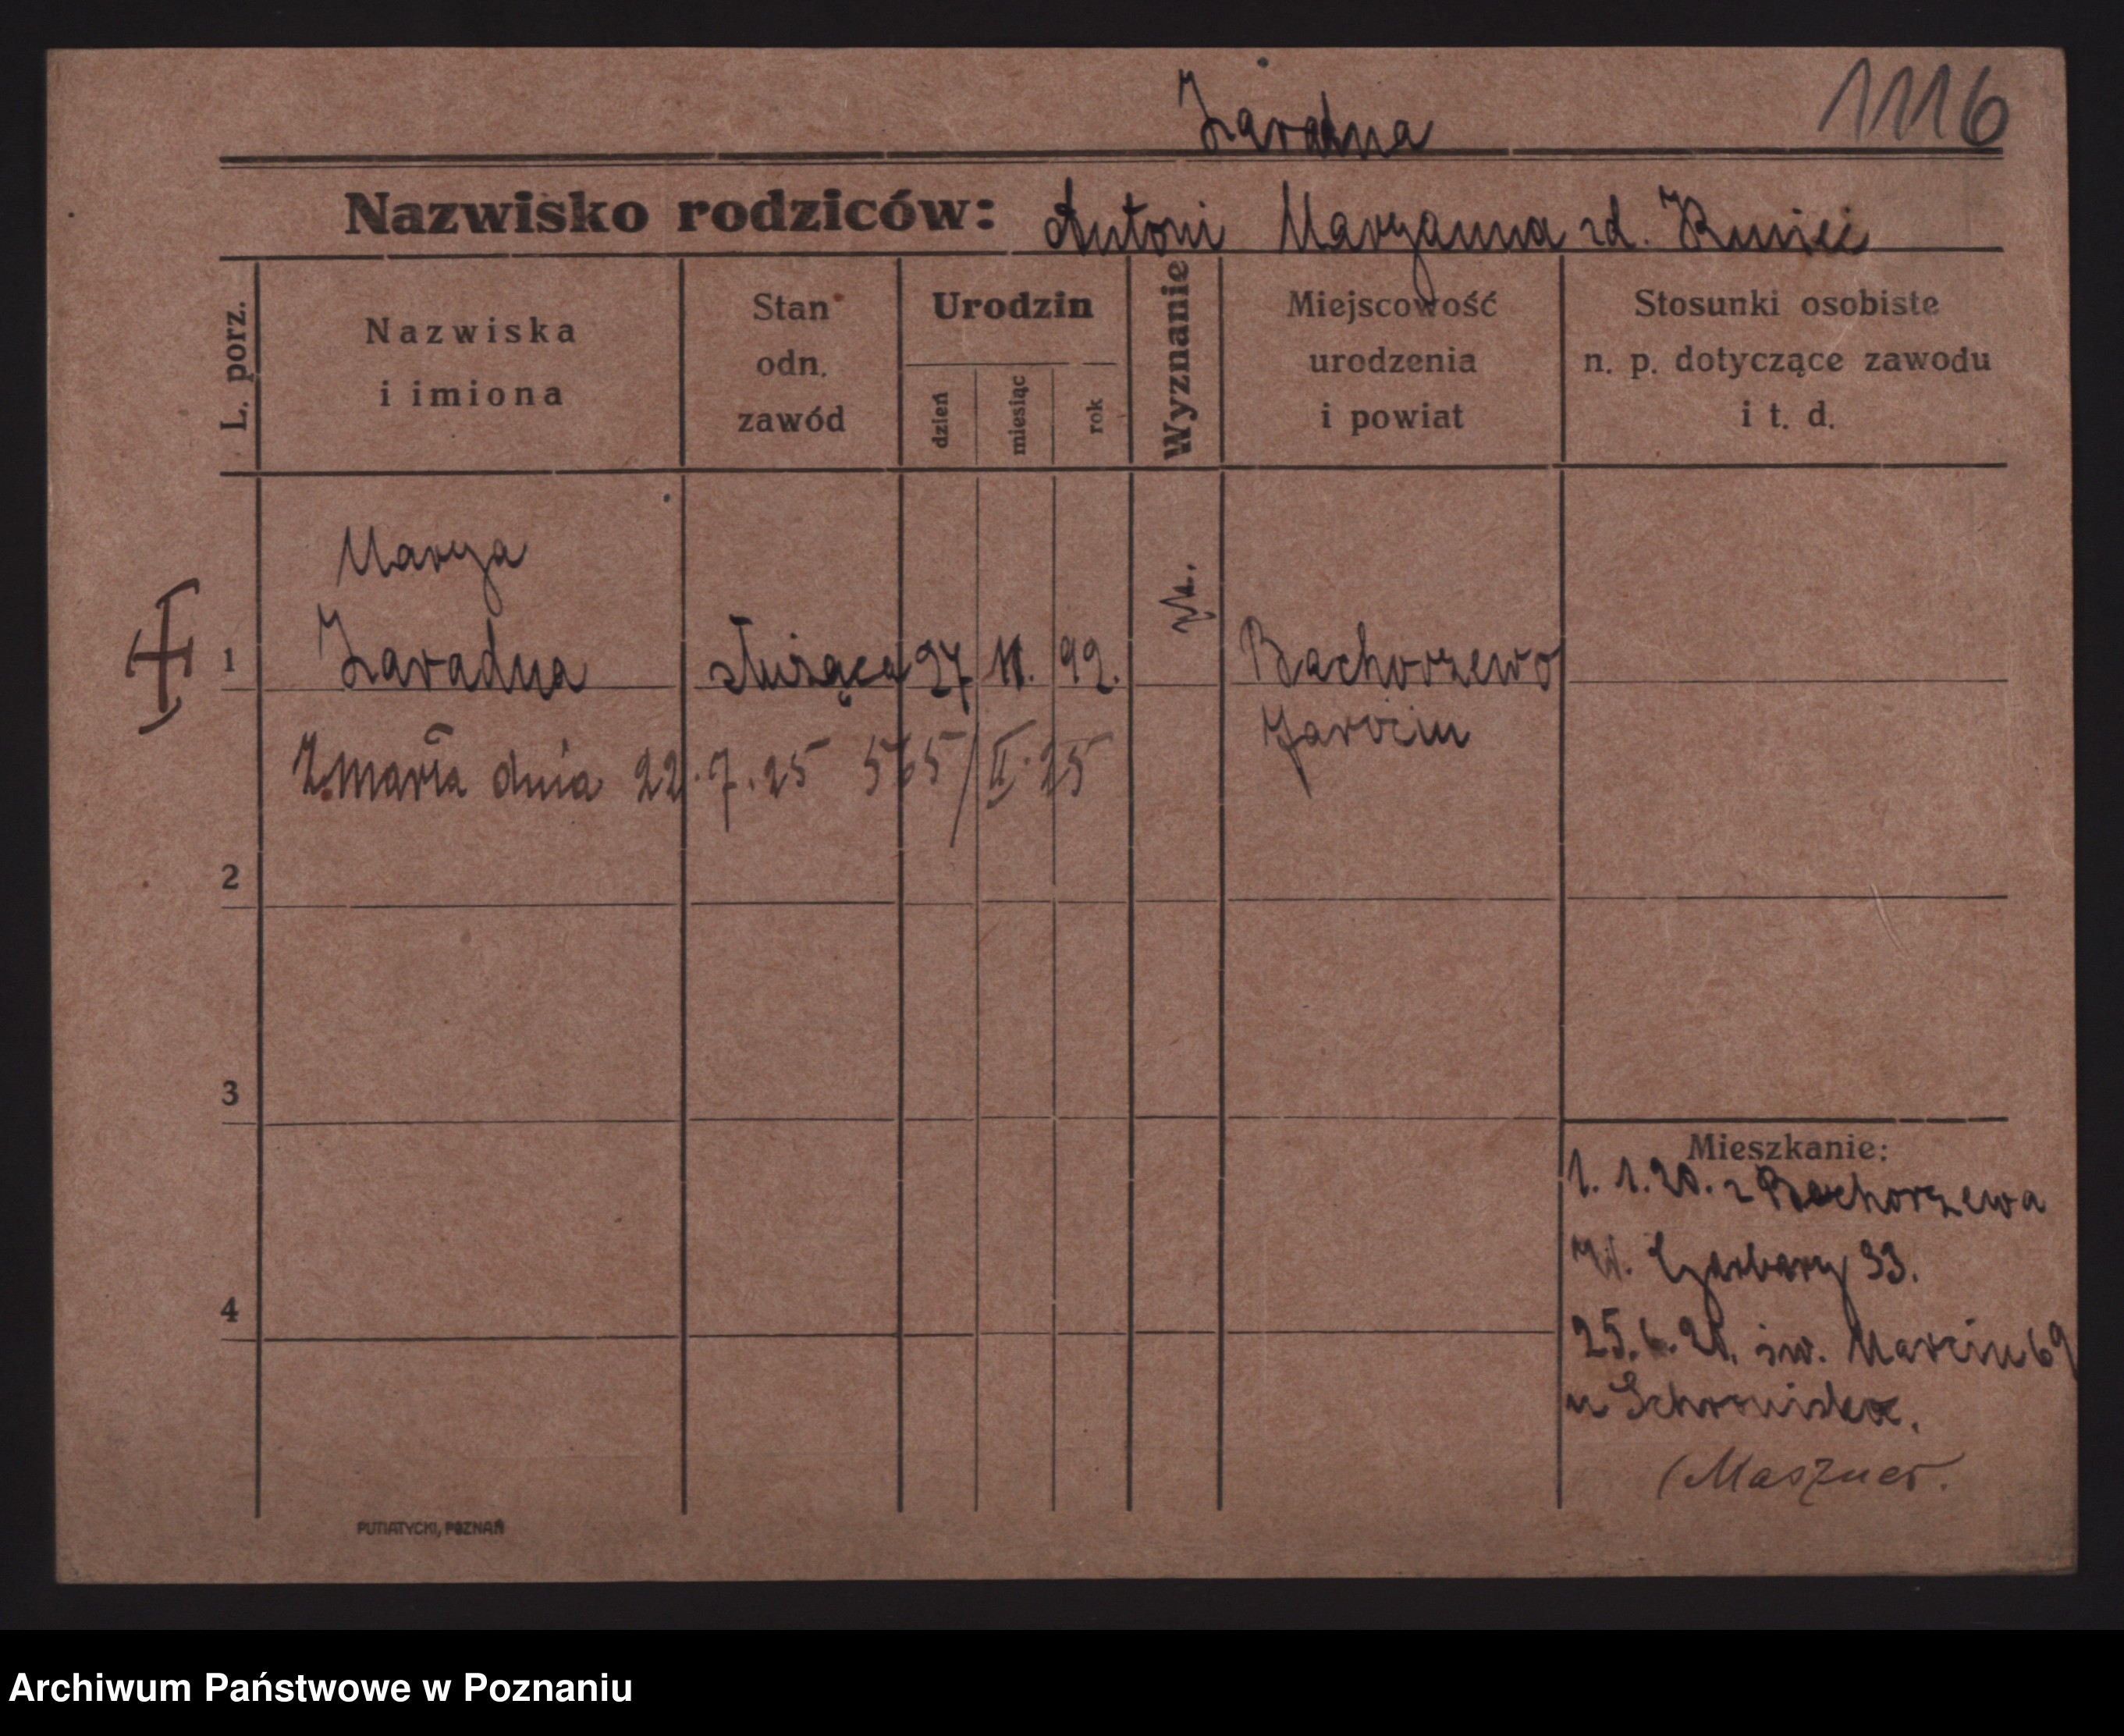 1116
Zaradna
Nazwisko rodziców: Antoni Maryanna zd.
L. porz.
Nazwiska
i imiona
Stan
odn.
zawód
Urodzin
dzień
miesiąc
rok
Wyznanie
Miejscowość
urodzenia
i powiat
Stosunki osobiste
n. p. dotyczące zawodu
i t. d.
Marya
1 Zaradna służąca 27 11. 99. rk. Bachorzewo
Jarocin
Zmarła dnia 22.7.25 565/II.25
2
3
4
Mieszkanie:
1. 1.20. z Bachorzewa
W. Garbary 33.
25.6.21. św. Marcin 69
u Schroniska.
(Maszner.
PUTIATYCKI, POZNAŃ
Archiwum Państwowe w Poznaniu